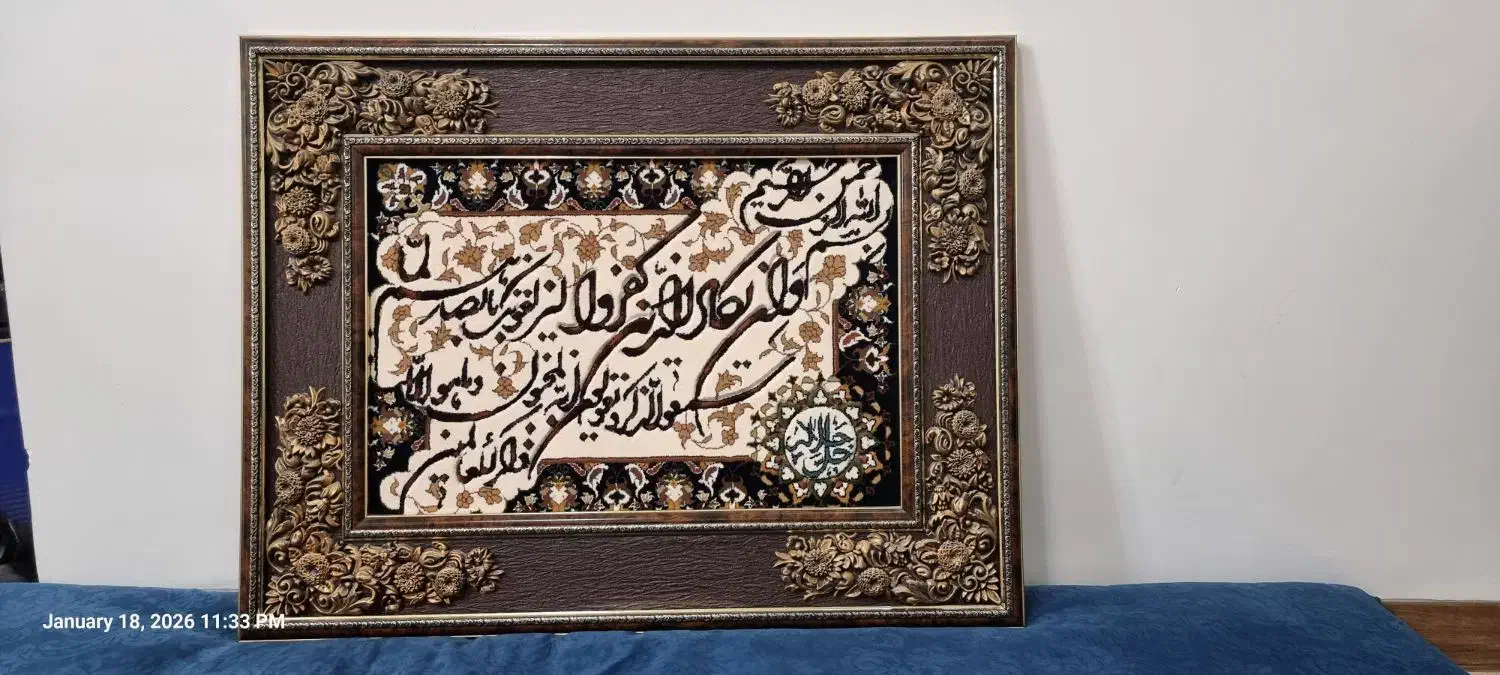 بسم الله الرحمن الرحیم
وان یکاد الذین کفروا لیزلقونک بابصارهم لما
سمعوا الذکر و یقولون انه لمجنون و ما هو الا
ذکر للعالمین
جل جلاله
January 18, 2026 11:33 PM